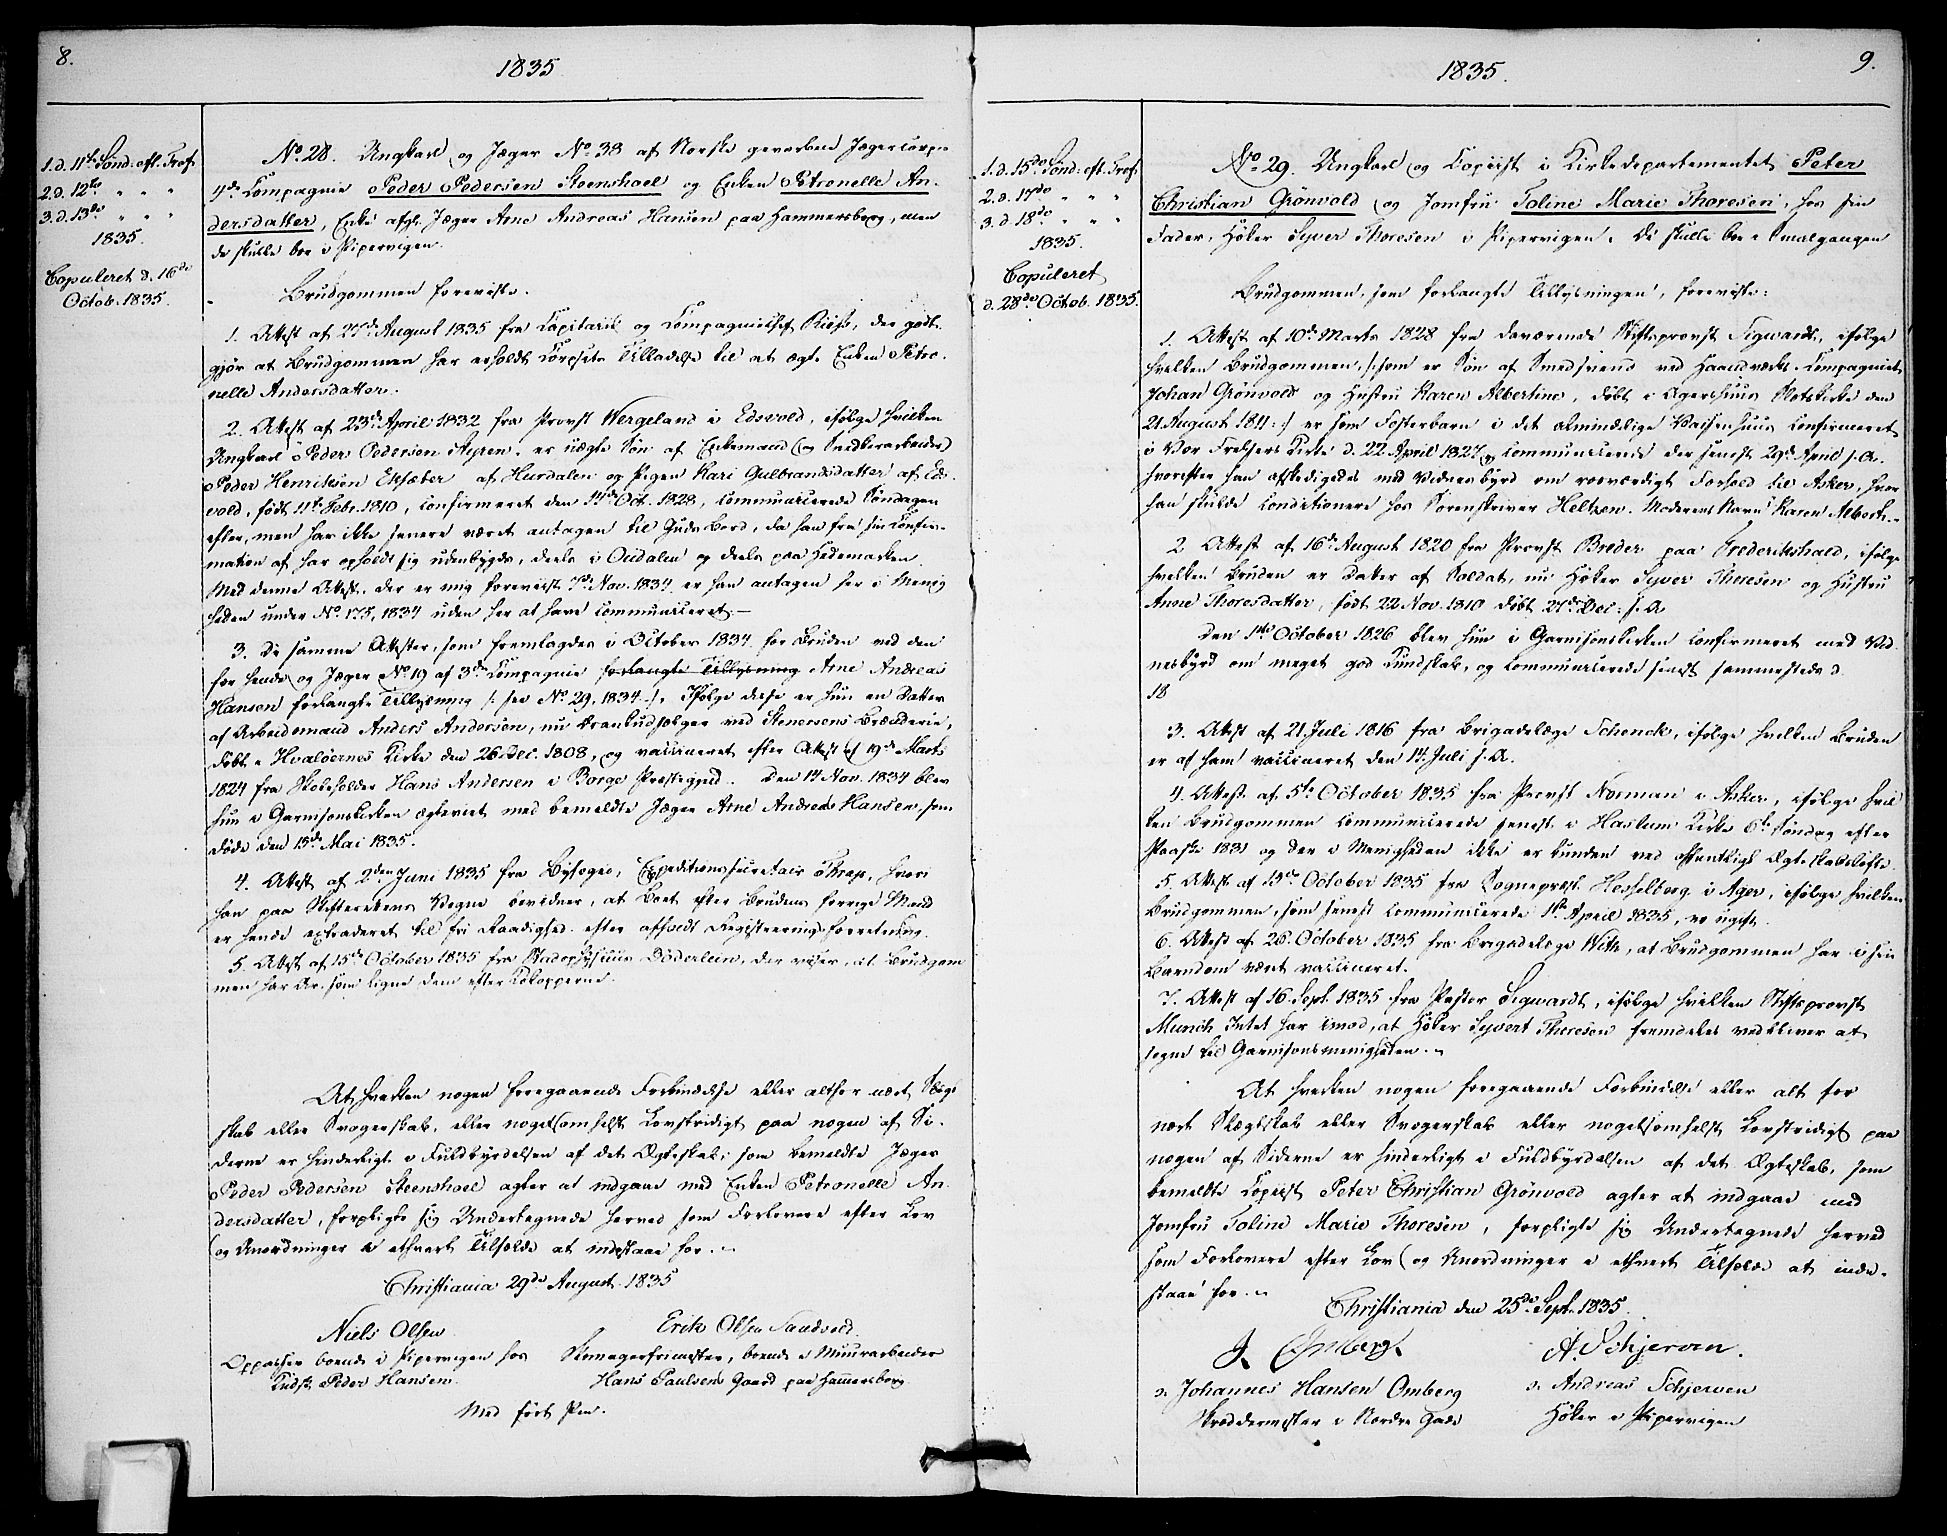 8.
1835
1. d. 11te Sönd: eft. Tref.
2. d. 12te " " "
3. d. 13de " " "
1835.
Copuleret d. 16de
Octob. 1835.
No. 28. Ungkarl og Jæger No. 38 af Norske gevorbne Jægercorps
4de Compagnie Peder Pedersen Steenshoel og Enken Petronelle An-
dersdatter, Enke efter Jæger Arne Andreas Hansen paa Hammersborg, men
de skulle boe i Pipervigen.
Brudgommen foreviste.
1. Attest af 27de August 1835 fra Capitain og Compagniechef der godt-
gjør at Brudgommen har erholdt Corpsets Tilladelse til at ægte Enken Petro-
nelle Andersdatter.
2. Attest af 23de April 1832 fra Provst Wergeland i Edsvold, ifölge hvilken
Ungkarl Peder Pedersen er uægte Sön af Enkemand og
Peder Henriksen af Hurdalen og Pigen Kari Gulbrandsdatter af Eds-
vold, födt 11te Febr. 1810, confirmeret den 14de Oct. 1828, communicerede Söndagen
efter, men har ikke senere været antagen til Guds Bord, da han fra sin Confir-
mation af har opholdt sig udenbygds, deels i Oudalen og deels paa Hedemarken.
Med denne Attest, der er mig foreviist 7de Nov. 1834 er han antagen her i Menig-
heden under No. 175, 1834 uden her at have communiceret.—
3. De samme Attester, som fremlagdes i October 1834 for Bruden ved den
for hende og Jæger No. 19 af 3die Compagnie forlangte Tillysning Arne Andreas
Hansen forlangte Tillysning /: see No. 29, 1834 :/. Ifölge disse er hun en Datter
af Arbeidsmand Anders Andersen, nu ved Stenersens Brænderie,
döbt i Hvalöernes Kirke den 26 Dec. 1808, og vaccineret efter Attest af 19de Marts
1824 fra Hans Andersen i Borge Præstegjeld. Den 14 Nov. 1834 blev
hun i Garnisonskirken ægteviet med bemeldte Jæger Arne Andreas Hansen, som
döde den 15de Mai 1835.
4. Attest af 2den Juni 1835 fra Byfoged, Expeditionssecretair hvori
han paa Skifterettens Vegne bevidner, at Boet efter Brudens forrige Mand
er hende extraderet til fri Raadighed efter afholdt Registreringsforretning.
5. Attest af 15de October 1835 fra Stadsphysicus Döderlein, der viser, at Brudgom-
men har Ar, som ligne dem efter Kokopperne.
At hverken nogen foregaaende Forbindelse eller altfor nært Slægt-
skab eller Svogerskab, eller nogetsomhelst Lovstridigt paa nogen af Si-
derne er hinderligt i Fuldbyrdelsen af det Ægteskab, som bemeldte Jæger
Peder Pedersen Steenshoel agter at indgaae med Enken Petronelle An-
dersdatter, forpligte sig Undertegnede herved som Forlovere efter Lov
og Anordninger i ethvert Tilfælde at indestaae for.
Christiania 29de August 1835
Niels Olsen
Erik Olsen Sandvold
Oppasser boende i Pipervigen hos
Skomagerfrimester, boende i Muurarbeider
Kudsk Peder Hansen.
Hans Paulsens Gaard paa Hammersborg.
Med fört Pen.
9.
1835.
1. d. 15de Sönd: eft. Tref.
2. d. 17de " " "
3. d. 18de " " "
1835.
Copuleret
d. 28de Octob. 1835.
No. 29. Ungkarl og Copiist i Kirkedepartementet Peter
Christian Grönvold og Jomfru Toline Marie Thoresen, hos sin
Fader, Höker Syver Thoresen i Pipervigen. De skulle boe i Smalgangen
Brudgommen, som forlangte Tillysningen, foreviste:
1. Attest af 10de Marts 1828 fra daværende Stiftsprovst Sigwardt, ifölge
hvilken Brudgommen, /: som er Sön af Smedsvend ved Haandværks-Compagniet
Johan Grönvold og Hustru Karen Albertine, döbt i Agershuus Slotskirke den
21 August 1811 :/ er som Fosterbarn i det almindelige Vaisenhuus confirmeret
i Vor Frelsers Kirke d. 22 April 1827, og communicerede der senest 29de April s. A.
hvorefter han afskedigedes med Vidnesbyrd om roesværdigt Forhold til Asker, hvor
han skulde conditionere hos Sorenskriver Heltzen. Moderens Navn Karen Albert..
2. Attest af 16de August 1820 fra Provst Breder paa Frederikshald, ifölge
hvilken Bruden er Datter af Soldat, nu Höker Syver Thoresen og Hustru
Anne Thoresdatter, födt 22 Nov. 1810 döbt 27de Dec: s. A.
Den 1ste October 1826 blev hun i Garnisonskirken confirmeret med Vid-
nesbyrd om meget god Kundskab, og communicerede senest sammesteds d.
18
3. Attest af 21 Juli 1816 fra Brigadelæge Schenck, ifölge hvilken Bruden
er af ham vaccineret den 14 Juli s. A.
4. Attest af 5te October 1835 fra Provst Norman i Asker, ifölge hvil-
ken Brudgommen communicerede senest i Haslum Kirke 6te Söndag efter
Paaske 1831 og der i Menigheden ikke er bunden ved offentligt Ægteskabslöfte.
5. Attest af 13de October 1835 fra Sognepræst Hesselberg i Ager, ifölge hvilken
Brudgommen, som senest communicerede April 1835, er ugift.
6. Attest af 26 October 1835 fra Brigadelæge at Brudgommen har i sin
Barndom været vaccineret.
7. Attest af 16 Sept. 1835 fra Pastor Sigwardt, ifölge hvilken Stiftsprovst
Munch Intet har imod, at Höker Syvert Thoresen fremdeles vedbliver at
sogne til Garnisonsmenigheden.
At hverken nogen foregaaende Forbindelse eller alt for
nært Slægtskab eller Svogerskab eller nogetsomhelst Lovstridigt paa
nogen af Siderne er hinderligt i Fuldbyrdelsen af det Ægteskab, som
bemeldte Copiist Peter Christian Grönvold agter at indgaae med
Jomfru Toline Marie Thoresen, forpligte sig Undertegnede herved
som Forlovere efter Lov og Anordninger i ethvert Tilfælde at inde-
staae for.
Christiania den 25de Sept. 1835.
J. Omberg.
A. Schjerven.
o: Johannes Hansen Omberg
o: Andreas Schjerven
Skræddermester i Nordre Gade
Höker i Pipervigen